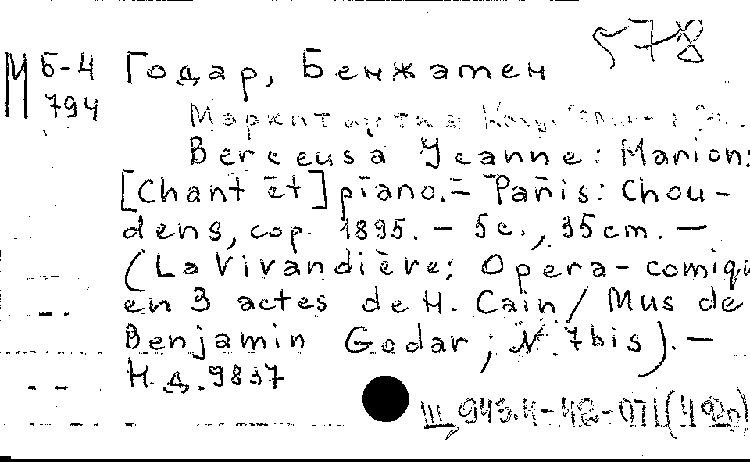 578
М Б-4 Годар, Бенжамен
794
Маркитантка
Berceusa Jeanne: Marion:
[Chant et] piano. – Paris: Chou-
dens, cop. 1895. – 5с., 35cm. –
(La Vivandière; Opera-comiqu
en 3 actes de H. Cain / Mus de
Benjamin Godar; N. 7bis). –
Н.д. 9837
Ш 943.4-42-071(4